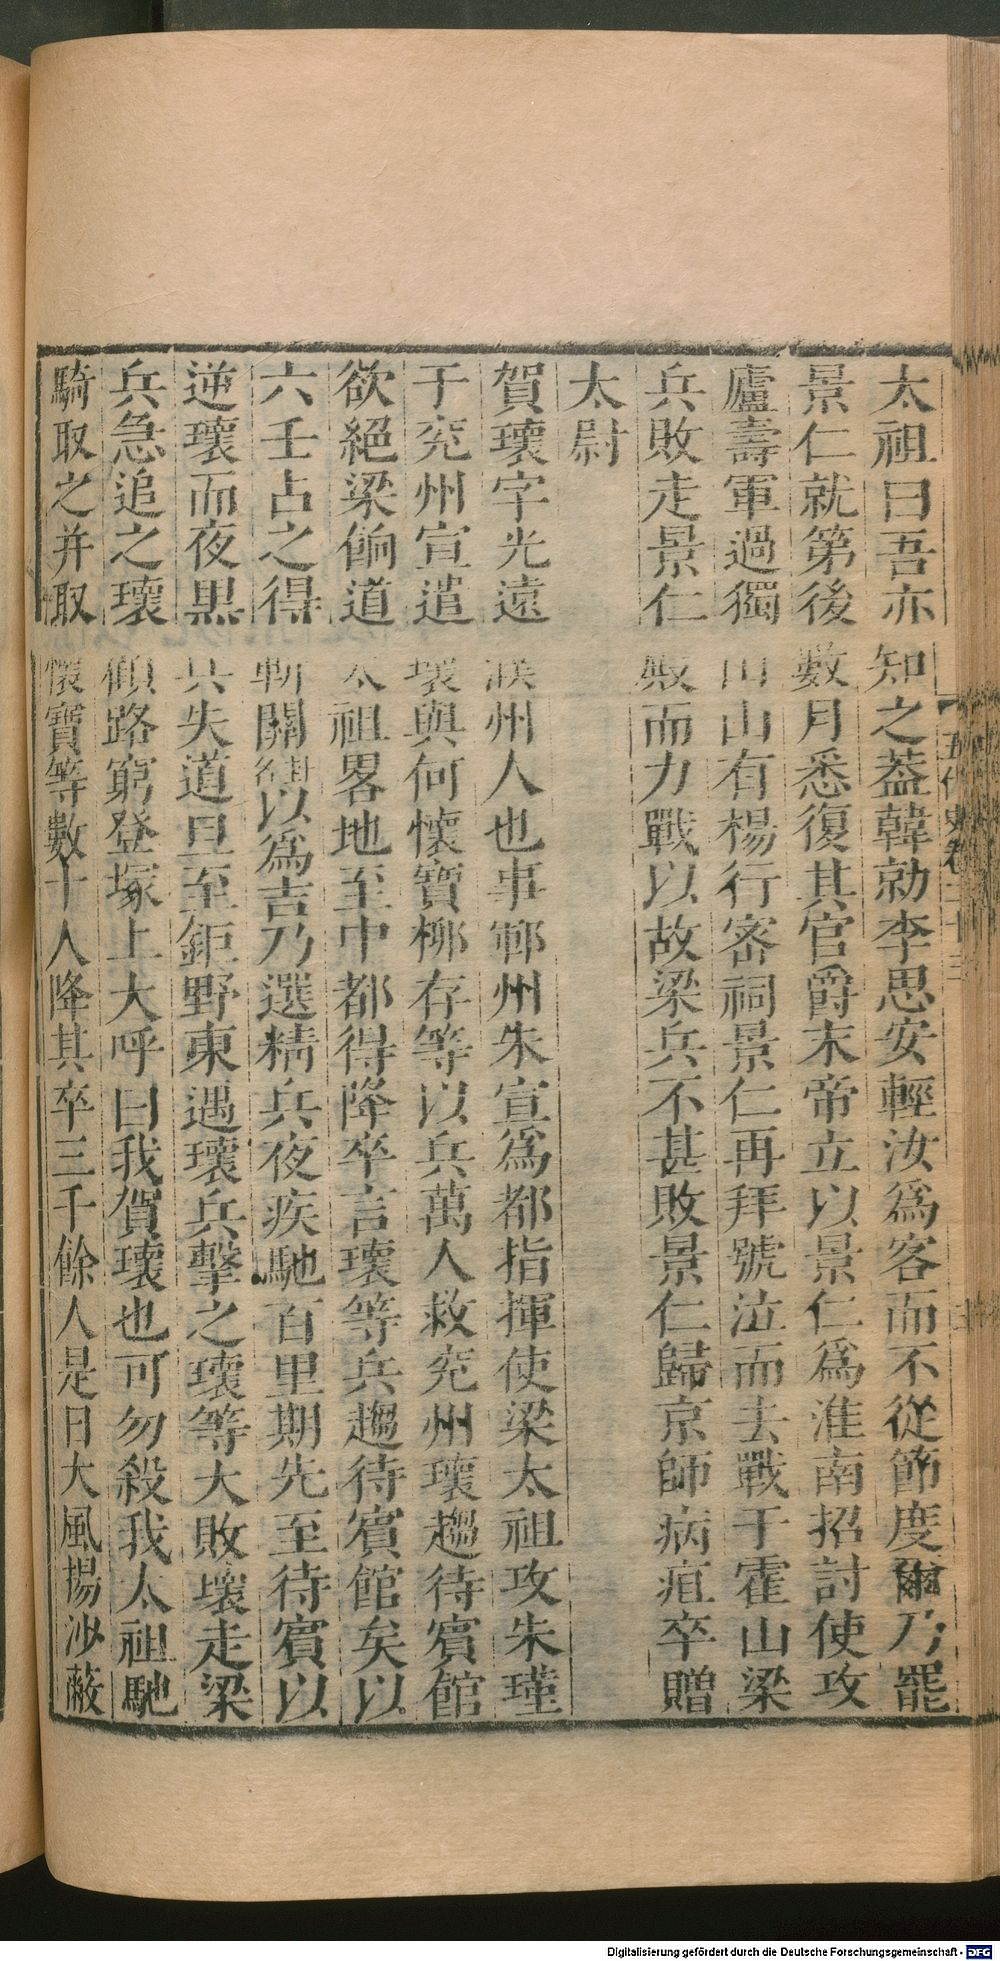 太祖曰吾亦知之葢韓勍李思安輕汝爲客而不從節度爾乃罷
景仁就第後數月悉復其官爵末帝立以景仁爲淮南招討使攻
廬壽軍過獨山山有楊行密祠景仁再拜號泣而去戰于霍山梁
兵敗走景仁殿而力戰以故梁兵不甚敗景仁歸京師病疽卒贈
太尉
賀瓌字光遠濮州人也事鄆州朱宣爲都指揮使梁太祖攻朱瑾
于兖州宣遣瓌與何懷寶柳存等以兵萬人救兖州瓌趨待賓館
欲絕梁餉道太祖畧地至中都得降卒言瓌等兵趨待賓館矣以
六壬占之得斬關以爲吉乃選精兵夜疾馳百里期先至待賓以
逆瓌而夜黑兵失道旦至鉅野東遇瓌兵擊之瓌等大敗瓌走梁
兵急追之瓌顧路窮登塚上大呼曰我賀瓌也可勿殺我太祖馳
騎取之并取懷寶等數十人降其卒三千餘人是日大風揚沙蔽
五代史卷二十三
Digitalisierung gefördert durch die Deutsche Forschungsgemeinschaft - DFG